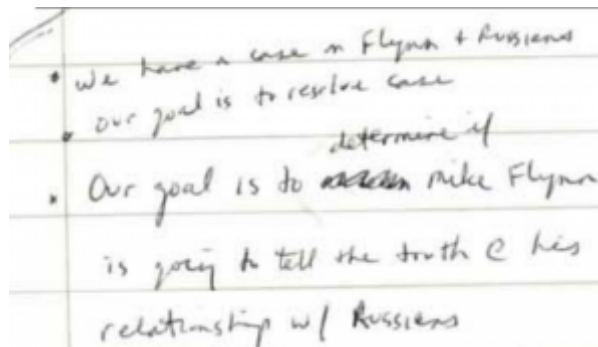 • We have a case on Flynn + Russians
• Our goal is to resolve case
determine if
• Our goal is to mike Flynn
is going to tell the truth @ his
relationship w/ Russians